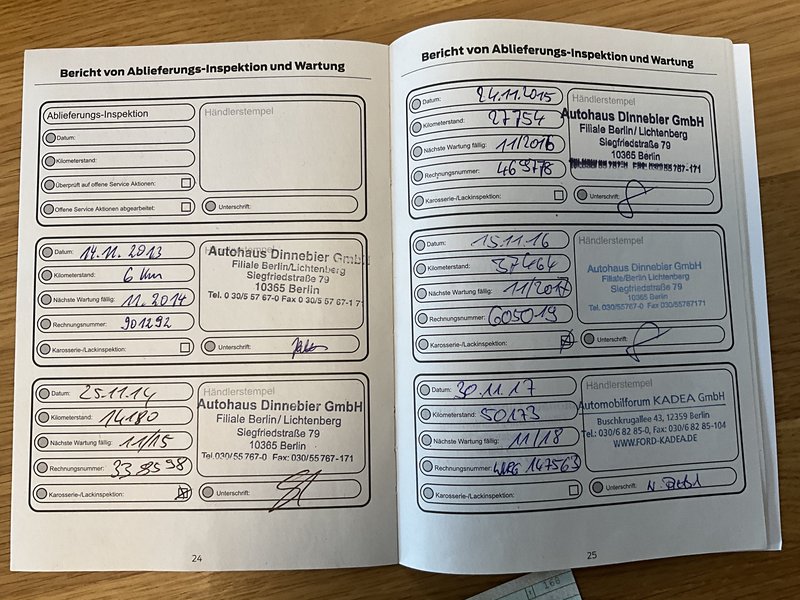 Bericht von Ablieferungs-Inspektion und Wartung
Ablieferungs-Inspektion
Datum:
Kilometerstand:
Überprüft auf offene Service Aktionen:
Offene Service Aktionen abgearbeitet:
Händlerstempel
Unterschrift:
Datum: 14.11.2013
Kilometerstand: 6 Km
Nächste Wartung fällig: 11.2014
Rechnungsnummer: 901292
Karosserie-/Lackinspektion:
Händlerstempel
Autohaus Dinnebier GmbH
Filiale Berlin/Lichtenberg
Siegfriedstraße 79
10365 Berlin
Tel. 0 30/5 57 67-0 Fax 0 30/5 57 67-1 71
Unterschrift:
Datum: 25.11.14
Kilometerstand: 14180
Nächste Wartung fällig: 11/15
Rechnungsnummer: 338598
Karosserie-/Lackinspektion:
Händlerstempel
Autohaus Dinnebier GmbH
Filiale Berlin/Lichtenberg
Siegfriedstraße 79
10365 Berlin
Tel. 030/55 767-0 Fax: 030/55 767-171
Unterschrift:
24
Bericht von Ablieferungs-Inspektion und Wartung
Datum: 24.11.2015
Kilometerstand: 27754
Nächste Wartung fällig: 11/2016
Rechnungsnummer: 469778
Karosserie-/Lackinspektion:
Händlerstempel
Autohaus Dinnebier GmbH
Filiale Berlin/Lichtenberg
Siegfriedstraße 79
10365 Berlin
Unterschrift:
Datum: 15.11.16
Kilometerstand: 37464
Nächste Wartung fällig: 11/2017
Rechnungsnummer: 605019
Karosserie-/Lackinspektion:
Händlerstempel
Autohaus Dinnebier GmbH
Filiale Berlin/Lichtenberg
Siegfriedstraße 79
10365 Berlin
Tel. 030/55767-0 Fax: 030/55767171
Unterschrift:
Datum: 30.11.17
Kilometerstand: 50173
Nächste Wartung fällig: 11/18
Rechnungsnummer: 147563
Karosserie-/Lackinspektion:
Händlerstempel
Automobilforum KADEA GmbH
Buschkrugallee 43, 12359 Berlin
Tel.: 030/6 82 85-0, Fax: 030/6 82 85-104
WWW.FORD-KADEA.DE
Unterschrift:
25
168